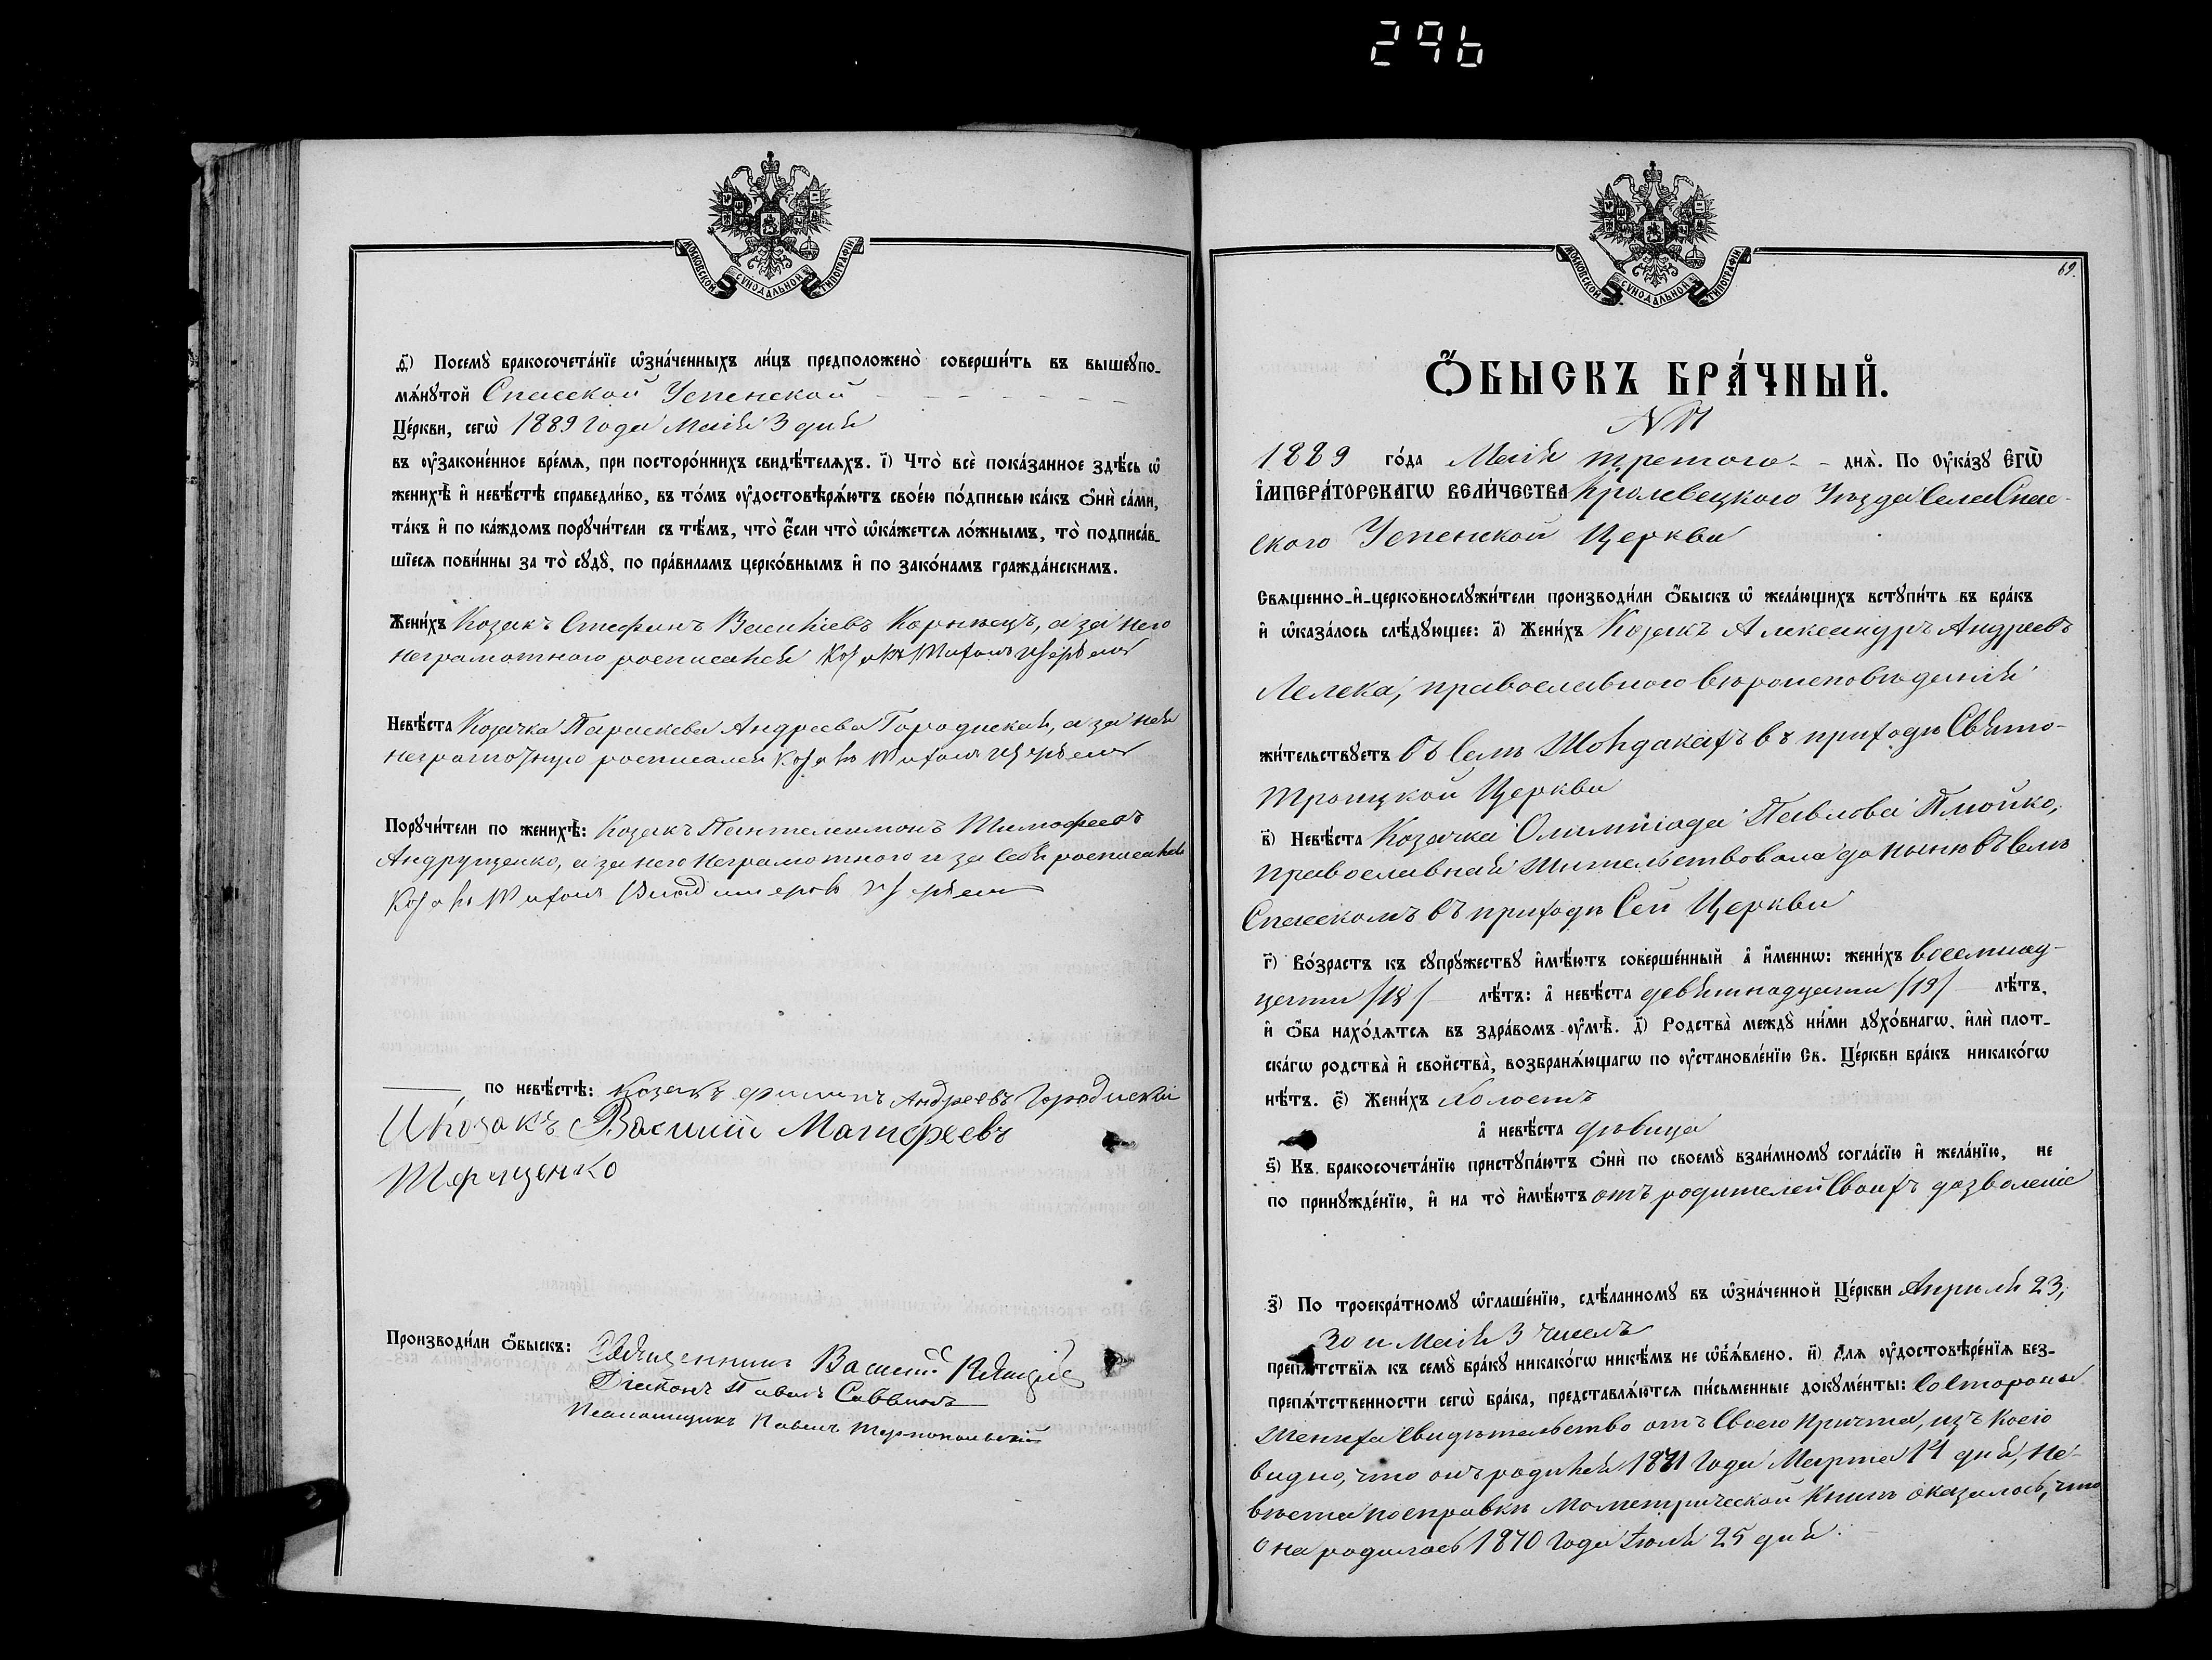 296
МОСКОВСКОЙ СѴНОДАЛЬНОЙ ТИПОГРАФІИ
ѳ҃) Посемꙋ̀ бракосочета́нїе ѡ҆зна́ченныхъ ли́цъ предположено̀ соверши́ть въ вышеꙋпо-
мѧ́нꙋтой Спасской Успенской
Це́ркви, сегѡ̀ 1889 года Маія 3 дня
въ ᲂу҆законе́нное вре́мѧ, при посторо́ннихъ свидѣ́телѧхъ. і҃) Что̀ всѐ пока́занное здѣ́сь ѡ҆
женихѣ̀ и҆ невѣ́стѣ справедли́во, въ то́мъ ᲂу҆достовѣрѧ́ютъ свое́ю по́дписью ка́къ ѻ҆нѝ са́ми,
та́къ и҆ по ка́ждомъ порꙋчи́тели съ тѣ́мъ, что̀ є҆́сли что̀ ѡ҆ка́жетсѧ ло́жнымъ, то̀ подписа́в-
шїесѧ пови́нны за то̀ сꙋдꙋ̀, по пра́виламъ церко́внымъ и҆ по зако́намъ гражда́нскимъ.
Жени́хъ Козакъ Стефанъ Васильевъ Корнѣецъ, а за него
неграмотного росписался Козакъ Тихонъ
Невѣ́ста Козачка Параскева Андреева Городиская, а за нея
неграмотную росписался Козакъ Тихонъ
Порꙋчи́тели по женихѣ̀: Козакъ Пантелеимонъ Тимофеевъ
Андрущенко, а за него неграмотного и за себя росписался
Козакъ Тихонъ Владимеровъ
по невѣ́стѣ: Козакъ Филипъ Андреевъ Городискій
И Козакъ Василій Матфеевъ
Терещенко
Производи́ли ѻ҆́быскъ: Священникъ Василій
Діаконъ Павелъ Саввинъ
Псаломщикъ Павелъ Тернопольскій
МОСКОВСКОЙ СѴНОДАЛЬНОЙ ТИПОГРАФІИ
69.
Ѻ҆́БЫСКЪ БРА́ЧНЫЙ.
1889 го́да Маія третого днѧ̀. По Оу҆ка́зꙋ Є҆гѡ̀
И҆мпера́торскагѡ Вели́чества Кролевецкого Уѣзда Села Спас-
ского Успенской Церкви
Свѧщенно-и҆-церковнослꙋжи́тели производи́ли ѻ҆́быскъ ѡ҆ жела́ющихъ встꙋпи́ть въ бра́къ
и҆ ѡ҆каза́лось слѣ́дꙋющее: а҃) Жени́хъ Козакъ Александръ Андреевъ
Лелека, православного вѣроисповѣданія
жи́тельствꙋетъ въ селѣ Шондакахъ въ приходѣ Свято-
Троицкой Церкви
в҃) Невѣ́ста Козачка Олимпіада Павлова Плюйко,
православная Жительствовала до нынѣ въ селѣ
Спасскомъ въ приходѣ Сей Церкви
г҃) Во́зрастъ къ сꙋпрꙋ́жествꙋ и҆мѣ́ютъ соверше́нный а҆ и҆́меннѡ: жени́хъ восемнад-
цяти /18/ лѣ́тъ: а҆ невѣ́ста девятнадцяти /19/ лѣ́тъ,
и҆ ѻ҆́ба нахо́дѧтсѧ въ здра́вомъ ᲂу҆мѣ̀. д҃) Родства̀ междꙋ̀ ни́ми дꙋхо́внагѡ, и҆лѝ плот-
ска́гѡ родства̀ и҆ свойства̀, возбранѧ́ющагѡ по ᲂу҆становле́нїю Св. Це́ркви бра́къ никако́гѡ
нѣ́тъ. є҃) Жени́хъ холостъ
а҆ невѣ́ста дѣвица
ѕ҃) Къ бракосочета́нїю пристꙋпа́ютъ ѻ҆нѝ по своемꙋ̀ взаи́мномꙋ согла́сїю и҆ жела́нїю, не
по принꙋжде́нїю, и҆ на то̀ и҆мѣ́ютъ отъ родителей своихъ дозволеніе
з҃) По троекра́тномꙋ ѡ҆глаше́нїю, сдѣ́ланномꙋ въ ѡ҆зна́ченной Це́ркви Апреля 23,
30 и Маія 3 чиселъ
препѧ́тствїѧ къ семꙋ̀ бра́кꙋ никако́гѡ никѣ́мъ не ѡ҆б̾ѧ́влено. и҃) Длѧ ᲂу҆достовѣре́нїѧ без-
препѧ́тственности сегѡ̀ бра́ка, представлѧ́ютсѧ пи́сьменные докꙋме́нты: Состороны
Жениха Свидѣтельство отъ своего причта, изъ коего
видно, что онъ родился 1871 года Марта 14 дня, Не-
вѣста по справкѣ Мометрической Книги оказалось, что
она родилась 1870 года Іюля 25 дня.